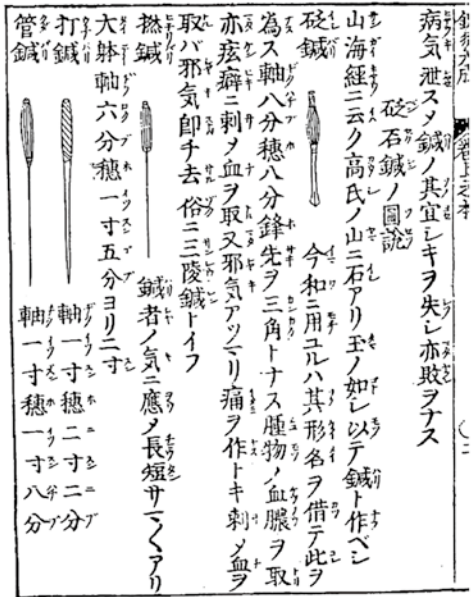 病気泄スメ鍼ノ其宜シキヲ失シ亦敗ヲナス
砭石鍼ノ圖説
山海経ニ云ク高氏ノ山ニ石アリ玉ノ如シ以テ鍼ト作ベシ
砭鍼 今和ニ用ユルハ其形名ヲ借テ此ヲ
為ス軸八分穂八分鋒先ヲ三角トナス腫物ノ血膿ヲ取
亦痃癖ニ刺メ血ヲ取又邪気アツマリ痛ヲ作トキ刺メ血ヲ
取バ邪気即チ去俗ニ三陵鍼トイフ
撚鍼 鍼者ノ気ニ應メ長短サマ〱アリ
大躰軸六分穂一寸五分ヨリ二寸
打鍼 軸一寸穂二寸二分
管鍼 軸一寸穂一寸八分